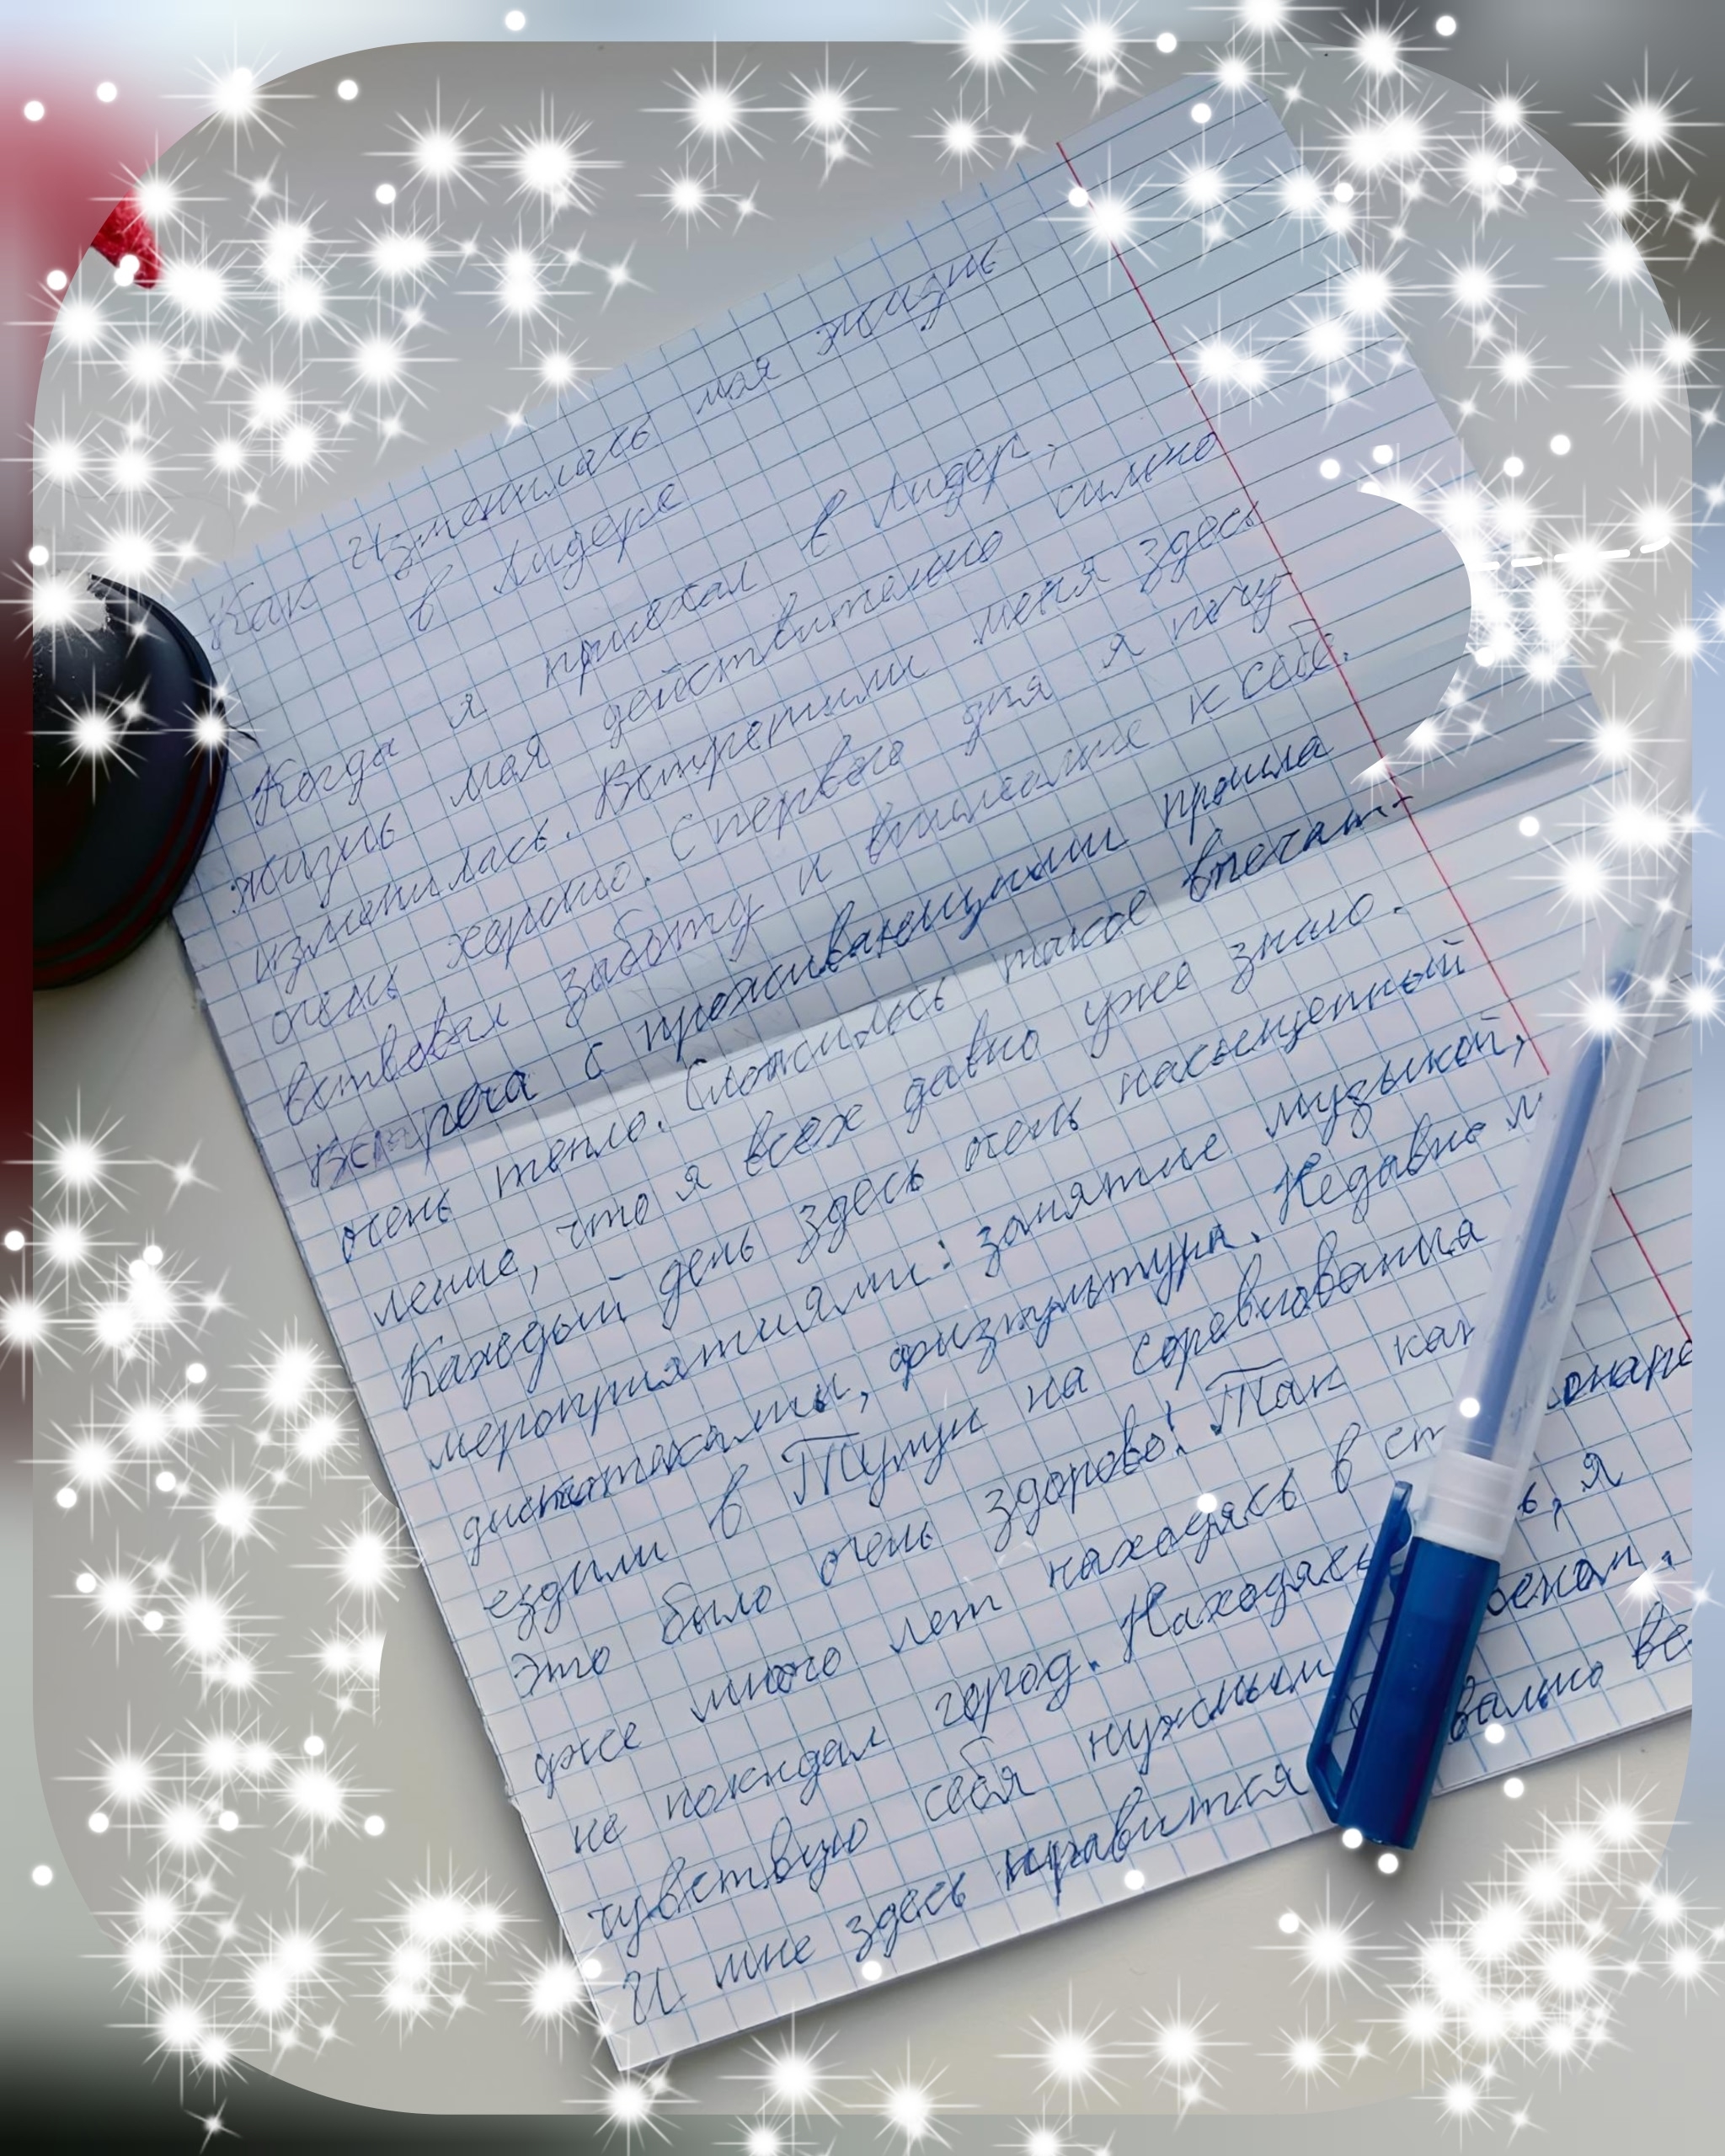 Как изменилась моя жизнь
в Лидере
Когда я приехал в Лидер,
жизнь моя действительно сильно
изменилась. Встретили меня здесь
очень хорошо. С первого дня я почу-
вствовал заботу и внимание к себе.
Встреча с проживающими прошла
очень тепло. Сложилось такое впечат-
ление, что я всех давно уже знаю.
Каждый день здесь очень насыщенный
мероприятиями: занятие музыкой,
дискотеками, физкультура. Недавно
ездили в Тулун на соревнования
Это было очень здорово! Так как
уже много лет находясь в
не покидал город. Находясь я
чувствую себя нужным
И мне здесь нравится